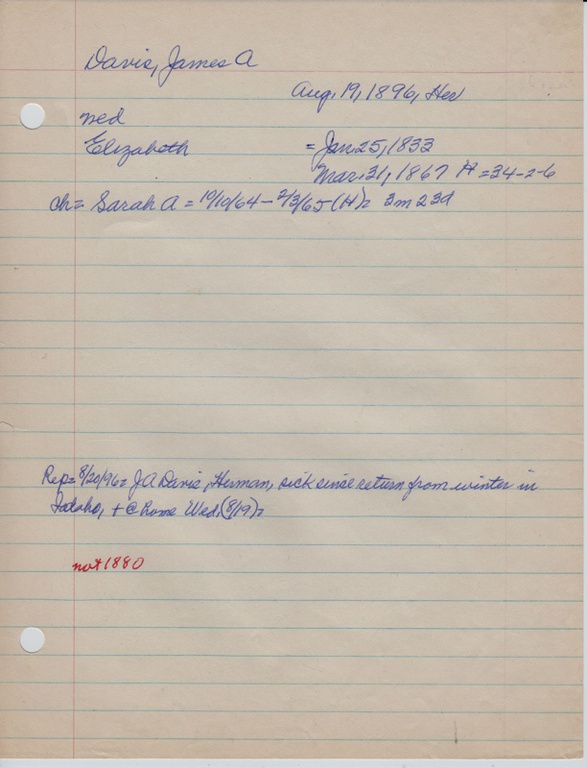 Davis, James A
Aug. 19, 1896, Her
med
Elizabeth = Jan. 25, 1833
Mar. 31, 1867 H = 34-2-6
ch = Sarah A = 10/10/64 - 2/3/65 (H) = 3m 23d
Rep = 8/20/96 = J A Davis, Herman, sick since return from winter in
Idaho, + @ home Wed. (8/19) =
not 1880